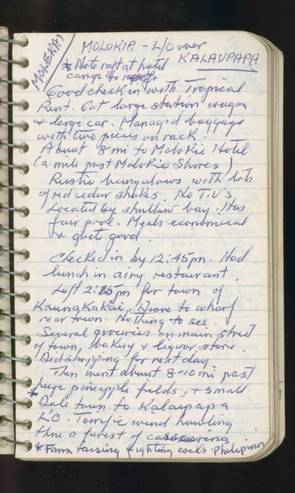 MOLOKAI
MOLOKIA - L/O over
KALAUPAPA
* Note raft at hotel
Good check in with Tropical
Rent. Got large station wagon
& large car. Managed baggage
with two pieces on rack.
About 8 mi to MoloKie Hotel
(a mile past MoloKie Shores)
Rustic bungalows with lots
of red cedar shakes. No T.V's
Located by shallow bay. Has
fair pool. Meals economical
& quite good.
Checked in by 12:45pm. Had
lunch in airy restaurant.
Left 2:15pm for town of
KaungKaKai, Drove to wharf
near town. Nothing to see.
Several groceries on main street
of town, bakery & liquor store.
Did shopping for next day
Then went about 8-10 mi past
huge pineapple fields, & small
Dole town to Kalaupapa
L/O. Terrific wind howling
thru a forest of
* Farm raising fighting cocks. Philipinos